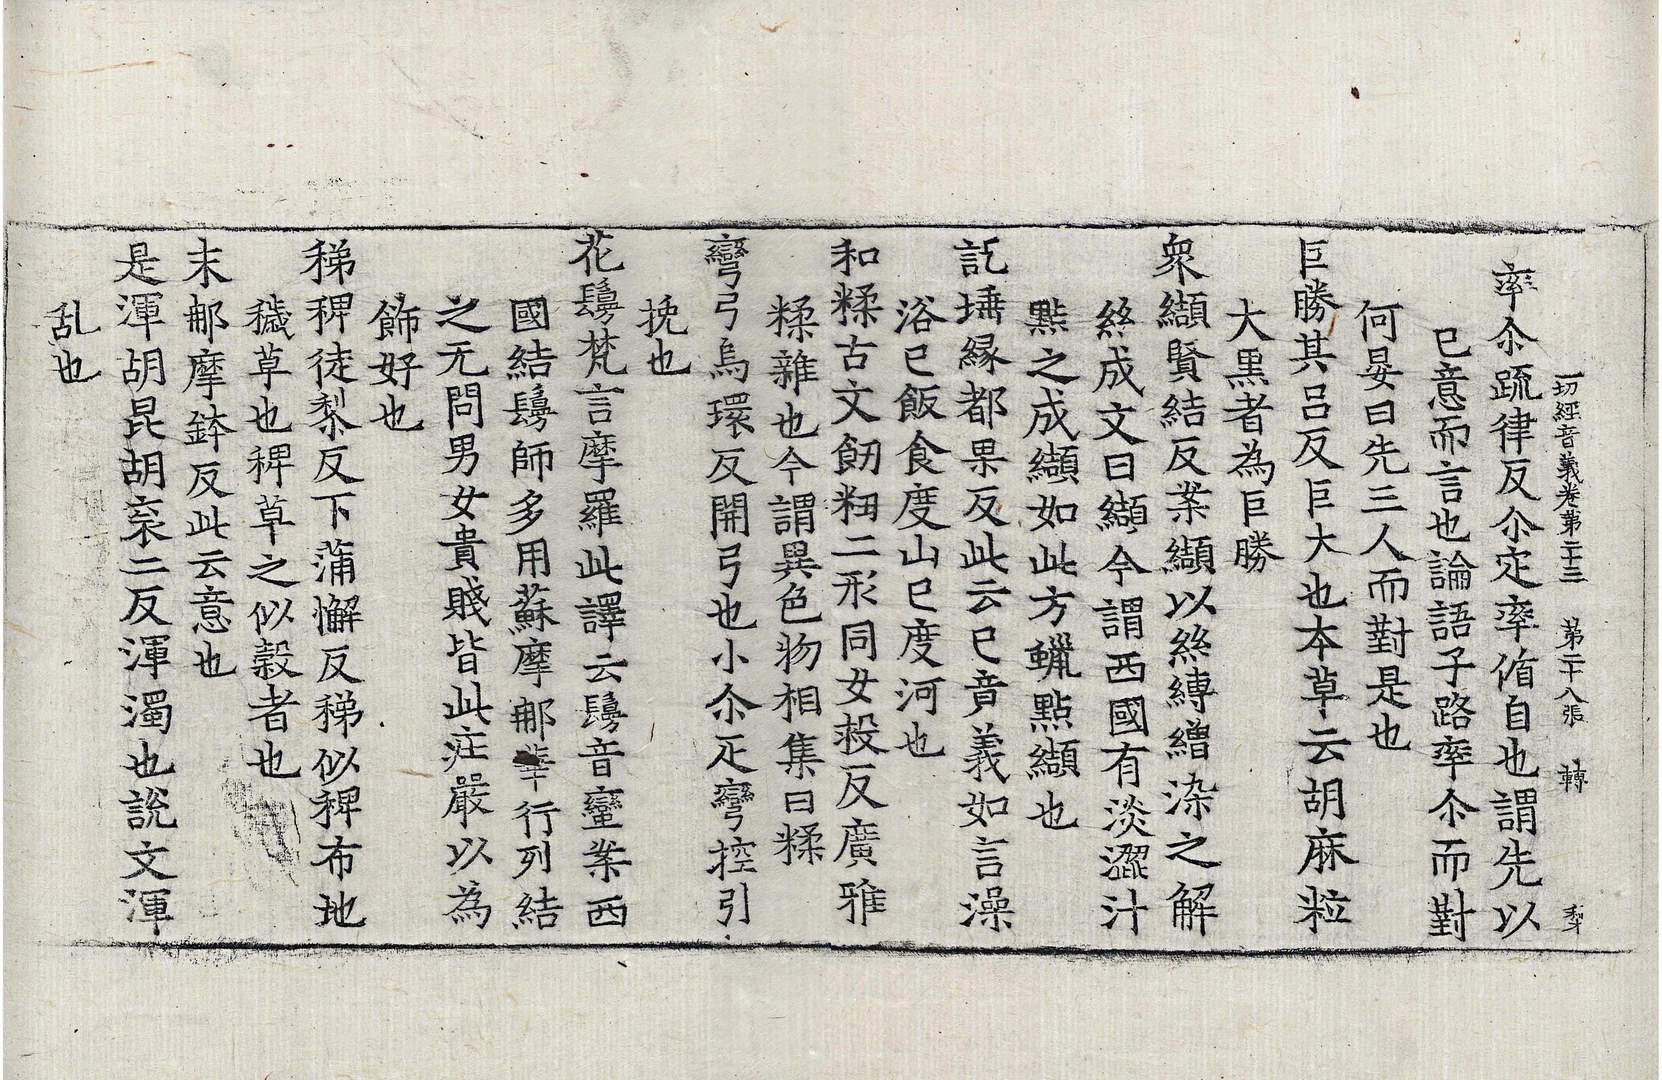 一切經音義卷第二十三 第二十八張 轉
率尒疏律反尒定率循自也謂先以
已意而言也論語子路率尒而對
何晏曰先三人而對是也
巨勝其呂反巨大也本草云胡麻粒
大黒者為巨勝
衆纈賢結反案纈以絲縛繒染之解
絲成文曰纈今謂西國有淡澀汁
點之成纈如此方蠟點纈也
託埵縁都果反此云已音義如言澡
浴已飯食度山已度河也
和糅古文飷粈二形同女救反廣雅
糅雜也今謂異色物相集曰糅
彎弓烏環反開弓也小尒疋彎控引
挽也
花鬘梵言摩羅此譯云鬘音蠻案西
國結鬘師多用蘇摩那華行列結
之无問男女貴賤皆此庄嚴以為
飾好也
稊稗徒黎反下蒲懈反稊似稗布地
穢草也稗草之似穀者也
末那摩鉢反此云意也
是渾胡昆胡衮二反渾濁也說文渾
乱也